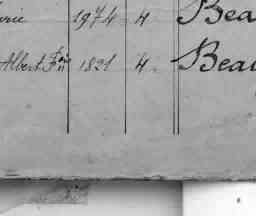 1974 4 Bea
Albert 1821 4. Beau